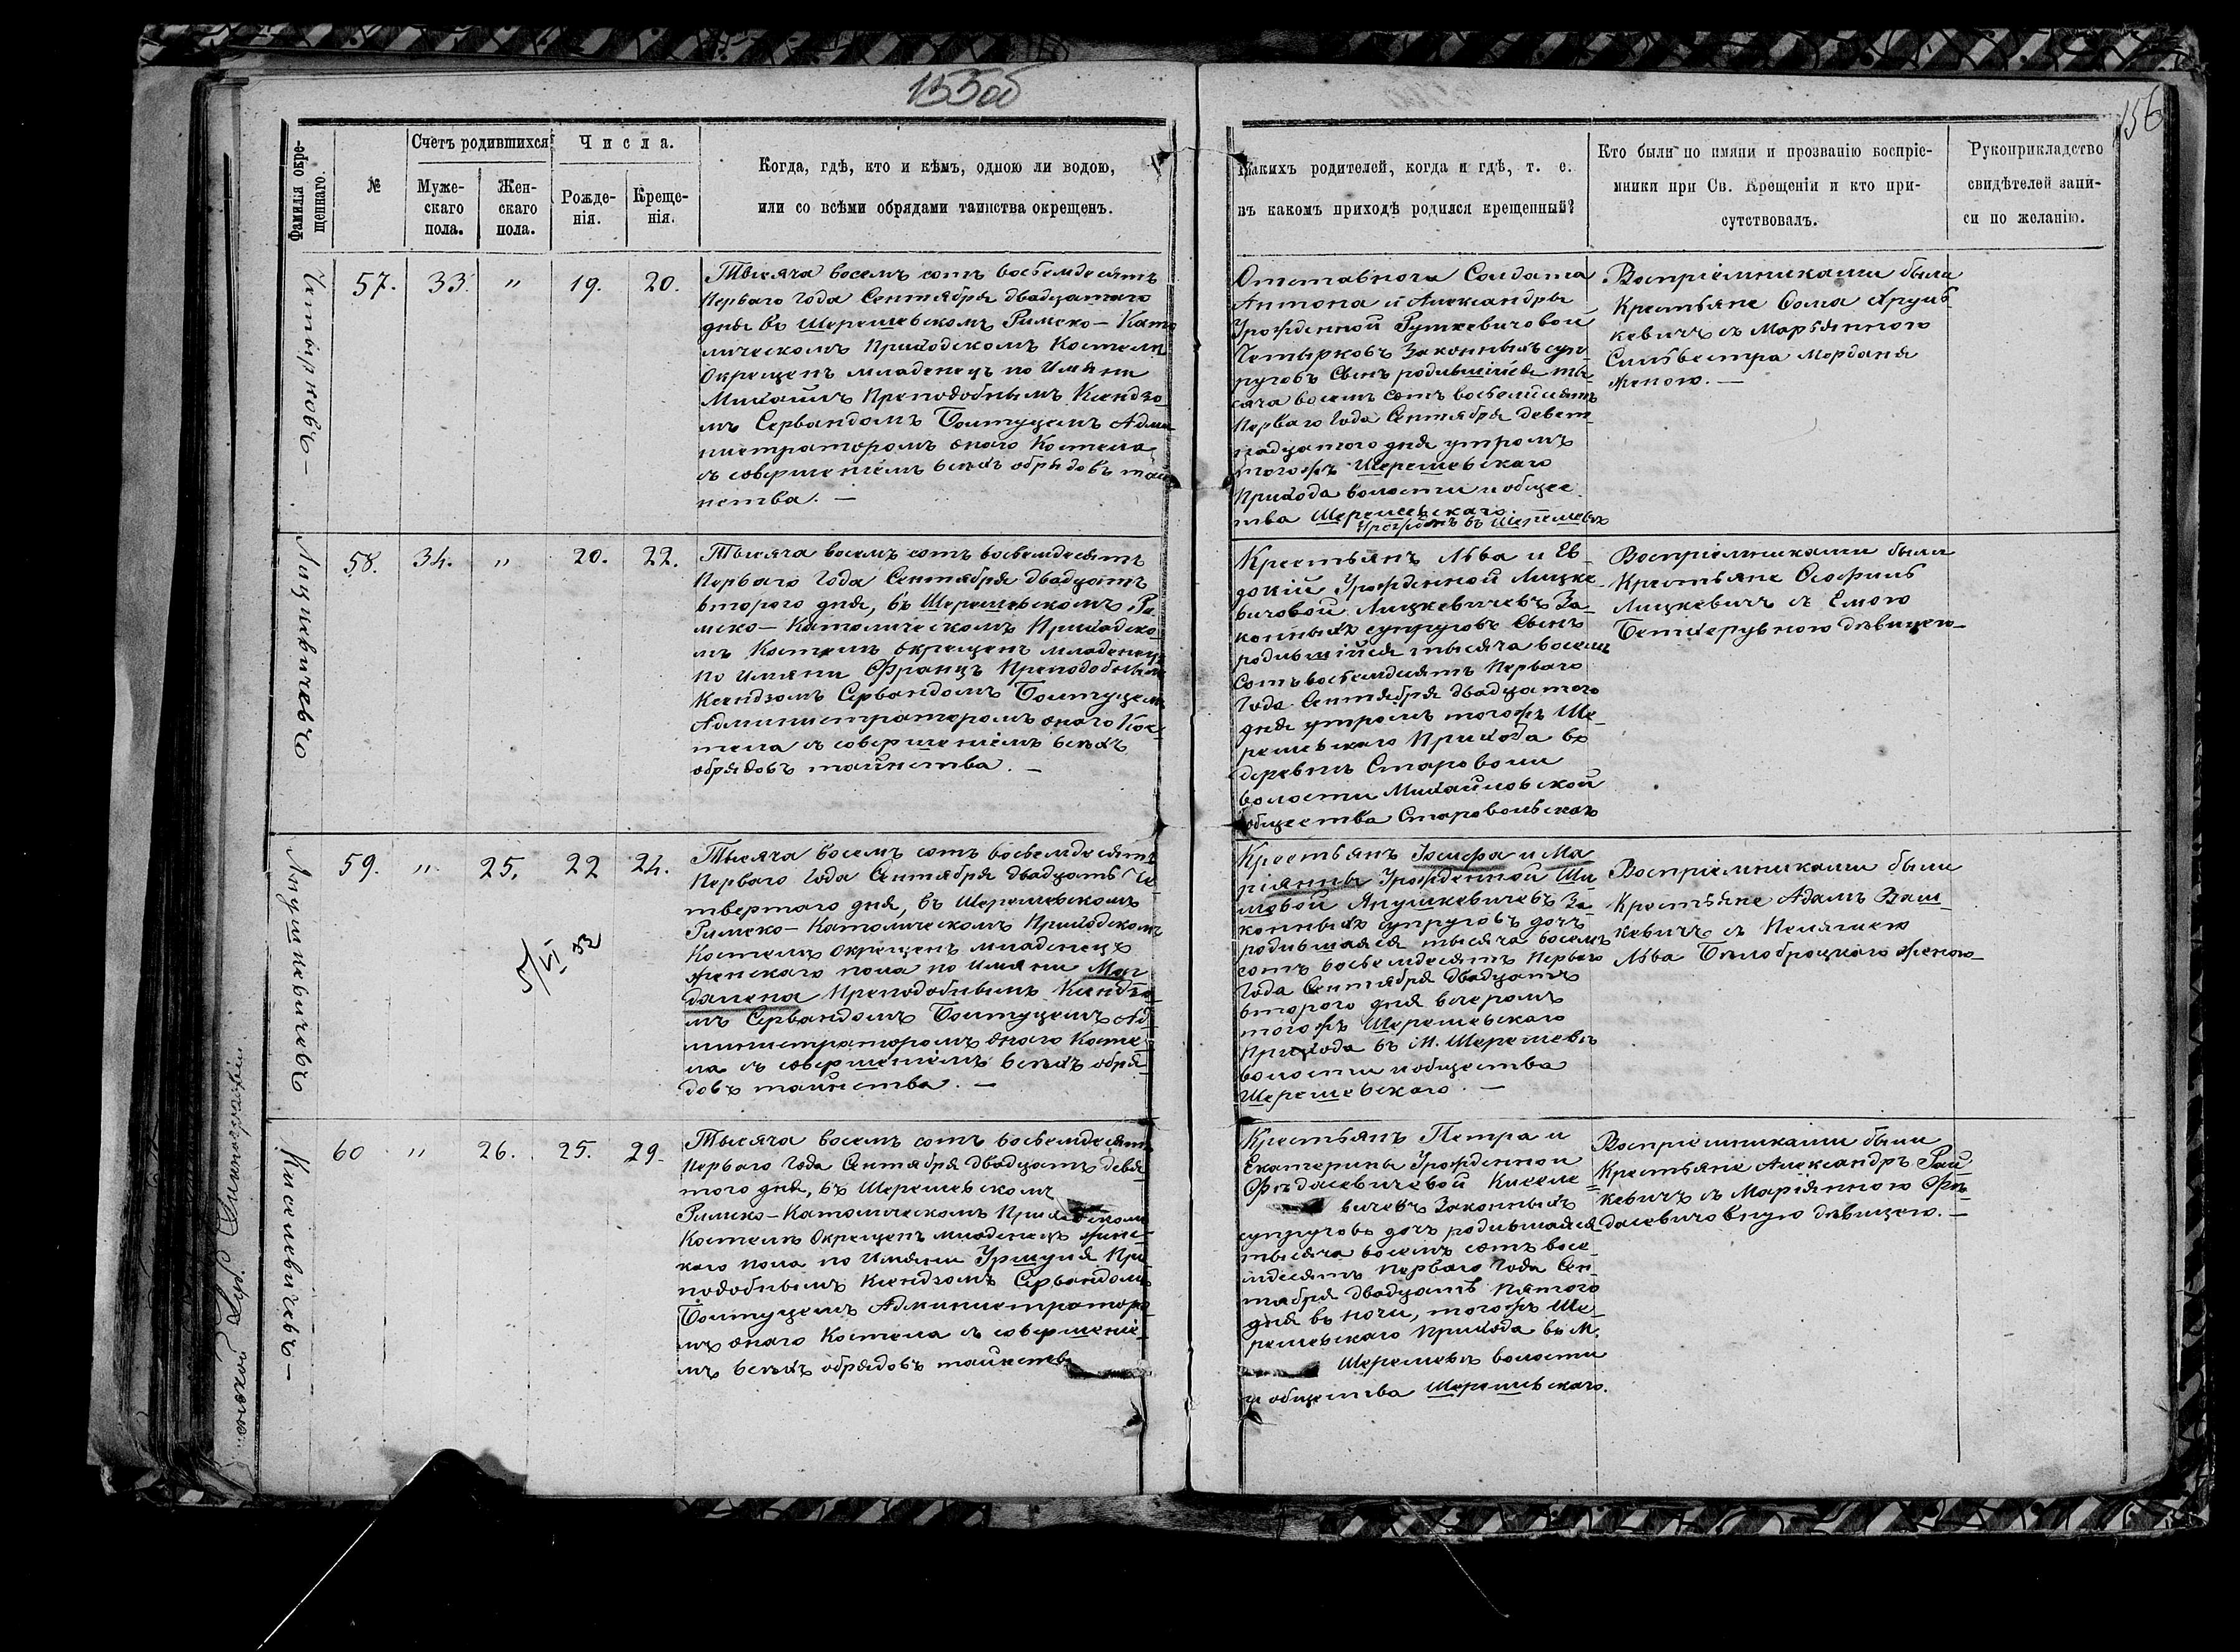 155об
156
Фамилія окре-
щеннаго.
№
Счетъ родившихся
Муже-
скаго
пола.
Жен-
скаго
пола.
Числа.
Рожде-
нія.
Креще-
нія.
Когда, гдѣ, кто и кѣмъ, одною ли водою,
или со всѣми обрядами таинства окрещенъ.
Какихъ родителей, когда и гдѣ, т. е.
въ какомъ приходѣ родился крещенный?
Кто были по имяни и прозванію воспріе-
мники при Св. Крещеніи и кто при-
сутствовалъ.
Рукоприкладство
свидѣтелей запи-
си по желанію.
57. 33. " 19. 20.
Тысяча восемъ сотъ восьмдесятъ
Перваго Года Сентября двадцатаго
дня въ Шерешевскомъ Римско-Като
лическомъ Приходскомъ Костелѣ
Окрещенъ младенецъ по Имяни
Михаилъ Преподобнымъ Ксендзо
мъ Сервандомъ Болтуцемъ Адми
нистраторомъ онаго Костела
съ совершеніемъ всѣхъ обрядовъ таи
нства. —
Отставнога Солдата
Антона и Александры
Урожденной Руткевичовой
Четырковъ Законныхъ суп-
руговъ Сынъ родившійся ты-
сяча восемъ сотъ восьмдесятъ
Перваго Года Сентября девят
надцатого дня утромъ
тогожъ Шерешевскаго
Прихода волости и общес
тва Шерешевскаго.
въ Шерешевѣ
Воспріемниками были
Крестьяне Ѳома
кевичъ съ Марьянною
Сильвестра Морданя
женою. —
Лицкевичевъ
58. 34. " 20. 22.
Тысяча восемъ сотъ восьмдесятъ
Перваго Года Сентября двадцатъ
втораго дня, въ Шерешевскомъ Ри
мско-Католическомъ Приходско
мъ Костелѣ окрещенъ младенецъ
по Имяни Францъ Преподобнымъ
Ксендзомъ Сервандомъ Болтуцемъ
Администраторомъ онаго Кос-
тела съ совершеніемъ всѣхъ
обрядовъ таинства. —
Крестьянъ Льва и Ев
докіи Урожденной Лицке
вичовой Лицкевичевъ За-
конныхъ супруговъ Сынъ
родившійся тысяча восемъ
Сотъ восьмдесятъ Перваго
Года Сентября двадцатого
дня утромъ тогожъ Ше-
решевскаго Прихода въ
деревнѣ Староволи
волости Михайловской
общества Старовольскаго
Воспріемниками были
Крестьяне Ѳеофиль
Лицкевичъ съ
дѣвицею —
Янушкевичевъ
59. " 25. 22 24.
5/VI 32
Тысяча восемъ сотъ восьмдесятъ
Перваго Года Сентября двадцать Че
твертаго дня, въ Шерешевскомъ
Римско-Католическомъ Приходскомъ
Костелѣ окрещенъ младенецъ
женскаго пола по Имяни Маг
далена Преподобнымъ Ксендзо
мъ Сервандомъ Болтуцемъ Ад
министраторомъ онаго Косте
ла съ совершеніемъ всѣхъ обря
довъ таинства. —
Крестьянъ Іосифа и Ма
ріянны Урожденной Ши
мовой Янушкевичевъ За-
конныхъ супруговъ дочь
родившаяся тысяча восемъ
сотъ восьмдесятъ Перваго
Года Сентября двадцать
втораго дня вечеромъ
тогожъ Шерешевскаго
Прихода въ М. Шерешевѣ
волости и общества
Шерешевскаго. —
Воспріемниками были
Крестьяне Адамъ
кевичъ съ Пелягиею
Льва Бѣлоброцкаго женою —
Киселевичевъ —
60 " 26. 25. 29.
Тысяча восемъ сотъ восьмдесятъ
Перваго Года Сентября двадцать девя
того дня, въ Шерешевскомъ
Римско-Католическомъ Приходскомъ
Костелѣ Окрещенъ младенецъ женс
каго пола по Имяни Уршуля Пре
подобнымъ Ксендзомъ Сервандомъ
Болтуцемъ Администраторо
мъ онаго Костела съ совершеніе
мъ всѣхъ обрядовъ таинства
Крестьянъ Петра и
Екатерины Урожденной
Фѣдасевичевой Киселе=
вичевъ Законныхъ
супруговъ дочь родившаяся
тысяча восемъ сотъ вось-
мдесятъ Перваго Года Сен
тября двадцать пятого
дня въ ночи, тогожъ Ше-
решевскаго Прихода въ М.
Шерешевѣ волости
и общества Шерешевскаго.
Воспріемниками были
Крестьяне Александръ
кевичъ съ Маріянною Фѣ-
дасевичовную дѣвицею. —